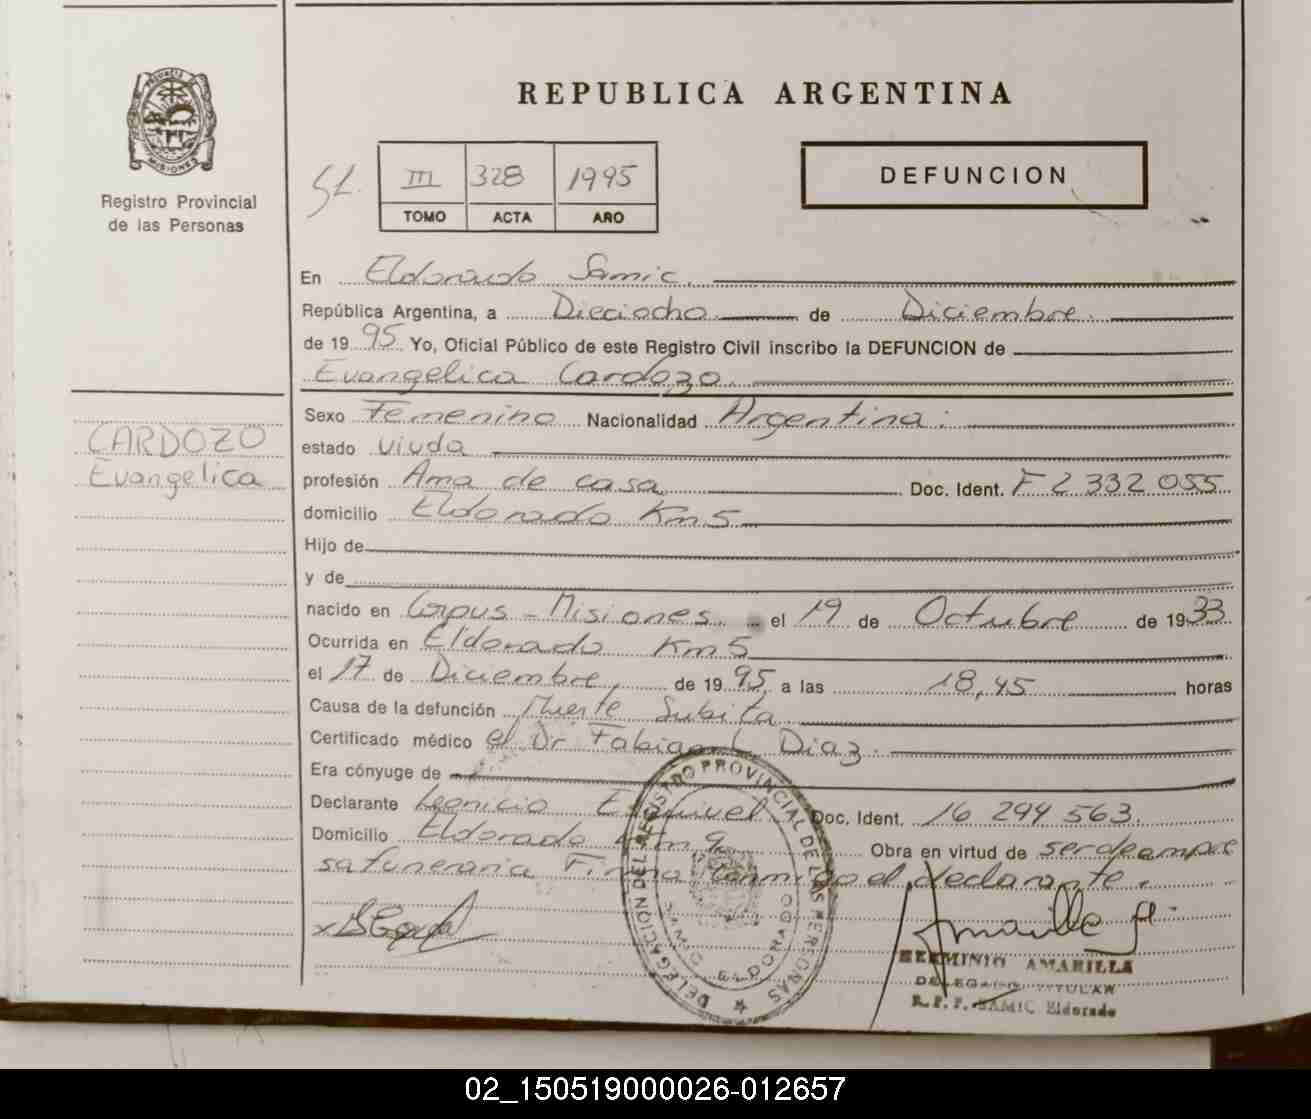 REPUBLICA ARGENTINA
PROVINCIA DE
MISIONES
Registro Provincial
de las Personas
III 328 1995
TOMO ACTA AÑO
DEFUNCION
En Eldorado Samic.
República Argentina, a Dieciocho de Diciembre.
de 19 95 Yo, Oficial Público de este Registro Civil inscribo la DEFUNCION de
Evangelica Cardozo.
CARDOZO
Evangelica
Sexo Femenino Nacionalidad Argentina.
estado viuda
profesión Ama de casa Doc. Ident. F 2 332 055
domicilio Eldorado Km 5
Hijo de
y de
nacido en Corpus - Misiones el 19 de Octubre de 1933
Ocurrida en Eldorado Km 5
el 17 de Diciembre, de 19 95, a las 18,45 horas
Causa de la defunción Muerte Subita
Certificado médico el Dr Fabian L Diaz.
Era cónyuge de
Declarante Leonicio Doc. Ident. 16 294 563.
Domicilio Eldorado Km 9 Obra en virtud de ser de empre
sa funeraria Firma conmigo el declarante.
DELEGACION DEL REGISTRO PROVINCIAL DE LAS PERSONAS
SAMIC ELDORADO
Amarilla H.
HERMINIO AMARILLA
DELEGADO TITULAR
R.P.P. SAMIC Eldorado
02_150519000026-012657